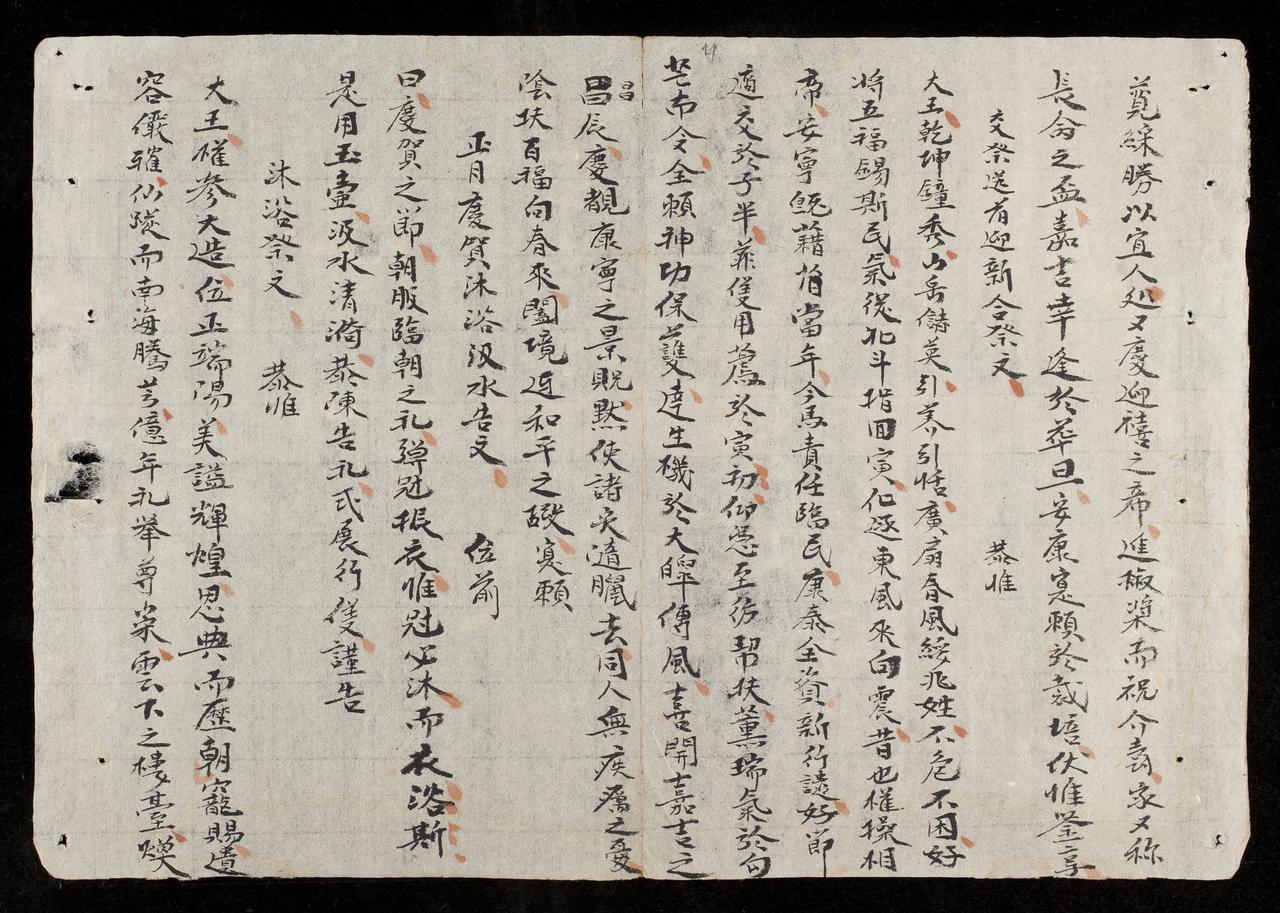 覔綵勝以宜人処〻慶迎禧之希進椒槳而祝介壽家〻称
長命之盃嘉吉幸逢於華旦安康寔頼於栽培伏惟鉴享
交祭送旧迎新合祭文 恭惟
大王乾坤鐘秀山岳鋳英引養引恬廣扇春風綏兆姓不危不困好
将五福錫斯民氣従北斗指回寅化逐東風来向震昔也権操相
帝安寧既藉旧當年今焉責任臨民康泰全資新行譴好節
適交於子半菲儀用荐於寅初仰憑至 幇扶薫瑞氣於勾
芒布令全頼神功保護達生機於大 傳風喜開嘉吉之
昌辰慶覩康寧之景貺黙使諸灾随臘去同人無疾癘之憂
陰扶百福向春来闔境迓和平之 寔頼
正月慶賀沐浴汲水告文 位前
曰慶賀之節朝服臨朝之礼彈冠振衣惟冠必沐而衣浴斯
是用玉壷汲水清漪恭陳告礼式展行儀謹告
沐浴祭文 恭惟
大王權参大造位正端陽美謚輝煌恩典而歷朝寵賜遺
容儀 仙蹤而南海騰芳億年礼举尊榮雲下之樓臺煥